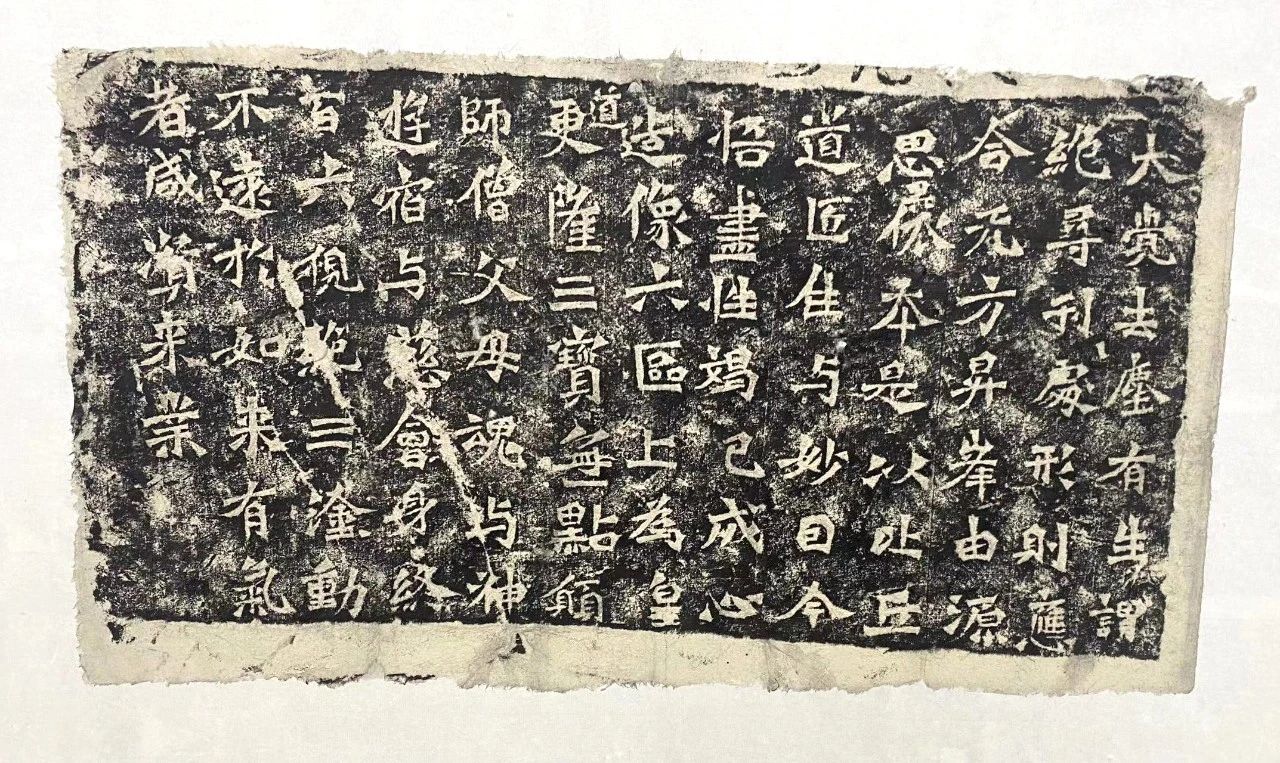 大覺去塵有生謂
絶尋刊處形則應
合无方昇峯由源
思本是以比丘
道匠住与妙曰今
悟盡性竭己成心
造像六區上為皇
道更隆三寶無點願
師僧父母魂与神
遊宿与慈會身終
百六視絶三塗動
不遠於如来有氣
者咸資来業